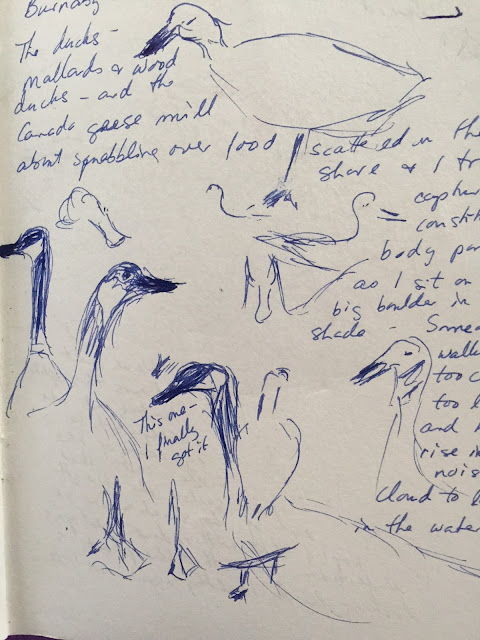 Burnaby
The ducks -
mallards & wood
ducks - and the
Canada geese mill
about squabbling over food scattered in the
shore & I tr
captur
constit
body par
as I sit on
big boulder in
shade - Someo
walk
too c
too l
and
rise in
nois
cloud to l
in the water
This one -
I finally
got it